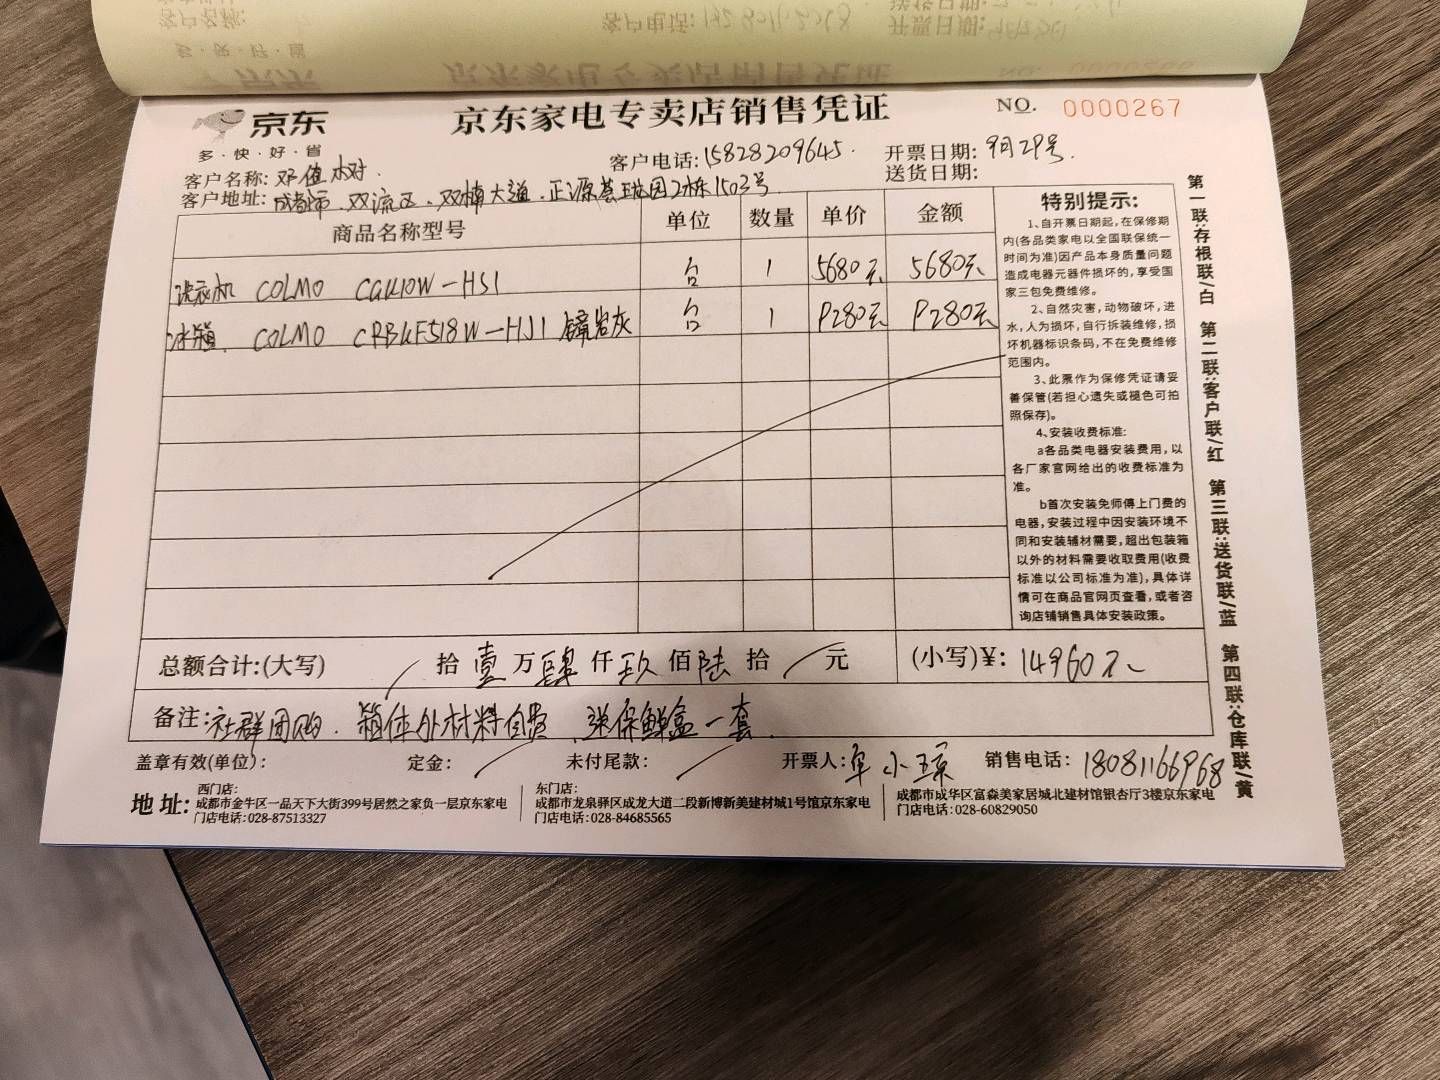 京东
多·快·好·省
京东家电专卖店销售凭证
NO. 0000267
客户名称: 邓值树
客户电话: 15828209645
开票日期: 9月29号
送货日期:
客户地址: 成都市.双流区.双楠大道.正源荟珑园2栋1503号
商品名称型号 单位 数量 单价 金额
洗衣机 COLMO CGK10W-HS1 台 1 5680元 5680元
冰箱. COLMO CRBKF518W-HJ1 镜岩灰 台 1 9280元 9280元
总额合计:(大写) 拾 壹 万 肆 仟 玖 佰 陆 拾 元 (小写)¥: 14960元
备注: 社群团购. 箱体外材料自费. 送保鲜盒一套.
盖章有效(单位): 定金: 未付尾款: 开票人: 小琼 销售电话: 18081166968
地址:
西门店:
成都市金牛区一品天下大街399号居然之家负一层京东家电
门店电话:028-87513327
东门店:
成都市龙泉驿区成龙大道二段新博新美建材城1号馆京东家电
门店电话:028-84685565
成都市成华区富森美家居城北建材馆银杏厅3楼京东家电
门店电话:028-60829050
特别提示:
1、自开票日期起,在保修期
内(各品类家电以全国联保统一
时间为准)因产品本身质量问题
造成电器元器件损坏的,享受国
家三包免费维修。
2、自然灾害,动物破坏,进
水,人为损坏,自行拆装维修,损
坏机器标识条码,不在免费维修
范围内。
3、此票作为保修凭证请妥
善保管(若担心遗失或褪色可拍
照保存)。
4、安装收费标准:
a各品类电器安装费用,以
各厂家官网给出的收费标准为
准。
b首次安装免师傅上门费的
电器,安装过程中因安装环境不
同和安装辅材需要,超出包装箱
以外的材料需要收取费用(收费
标准以公司标准为准),具体详
情可在商品官网页查看,或者咨
询店铺销售具体安装政策。
第一联:存根联/白 第二联:客户联/红 第三联:送货联/蓝 第四联:仓库联/黄